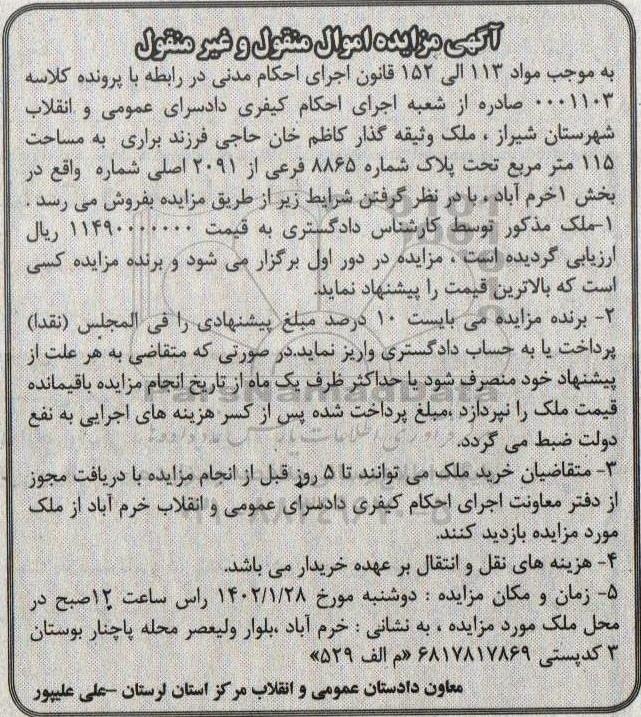 آگهی مزایده اموال منقول و غیر منقول
به موجب مواد ۱۱۳ الی ۱۵۲ قانون اجرای احکام مدنی در رابطه با پرونده کلاسه
۰۰۰۱۱۰۳ صادره از شعبه اجرای احکام کیفری دادسرای عمومی و انقلاب
شهرستان شیراز ، ملک وثیقه گذار کاظم خان حاجی فرزند براری به مساحت
۱۱۵ متر مربع تحت پلاک شماره ۸۸۶۵ فرعی از ۲۰۹۱ اصلی شماره واقع در
بخش ۱خرم آباد ، با در نظر گرفتن شرایط زیر از طریق مزایده بفروش می رسد .
۱-ملک مذکور توسط کارشناس دادگستری به قیمت ۱۱۴۹۰۰۰۰۰۰۰ ریال
ارزیابی گردیده است ، مزایده در دور اول برگزار می شود و برنده مزایده کسی
است که بالاترین قیمت را پیشنهاد نماید
۲- برنده مزایده می بایست ۱۰ درصد مبلغ پیشنهادی را فی المجلس (نقدا)
پرداخت یا به حساب دادگستری واریز نماید.در صورتی که متقاضی به هر علت از
پیشنهاد خود منصرف شود یا حداکثر ظرف یک ماه از تاریخ انجام مزایده باقیمانده
قیمت ملک را نپردازد ،مبلغ پرداخت شده پس از کسر هزینه های اجرایی به نفع
دولت ضبط می گردد.
۳- متقاضیان خرید ملک می توانند تا ۵ روز قبل از انجام مزایده با دریافت مجوز
از دفتر معاونت اجرای احکام کیفری دادسرای عمومی و انقلاب خرم آباد از ملک
مورد مزایده بازدید کنند.
۴- هزینه های نقل و انتقال بر عهده خریدار می باشد.
۵- زمان و مکان مزایده : دوشنبه مورخ ۱۴۰۲/۱/۲۸ راس ساعت ۱۲صبح در
محل ملک مورد مزایده ، به نشانی : خرم آباد ،بلوار ولیعصر محله پاچنار بوستان
۳ کدپستی ۶۸۱۷۸۱۷۸۶۹ «م الف ۵۲۹»
معاون دادستان عمومی و انقلاب مرکز استان لرستان -علی علیپور
ParsNamadData